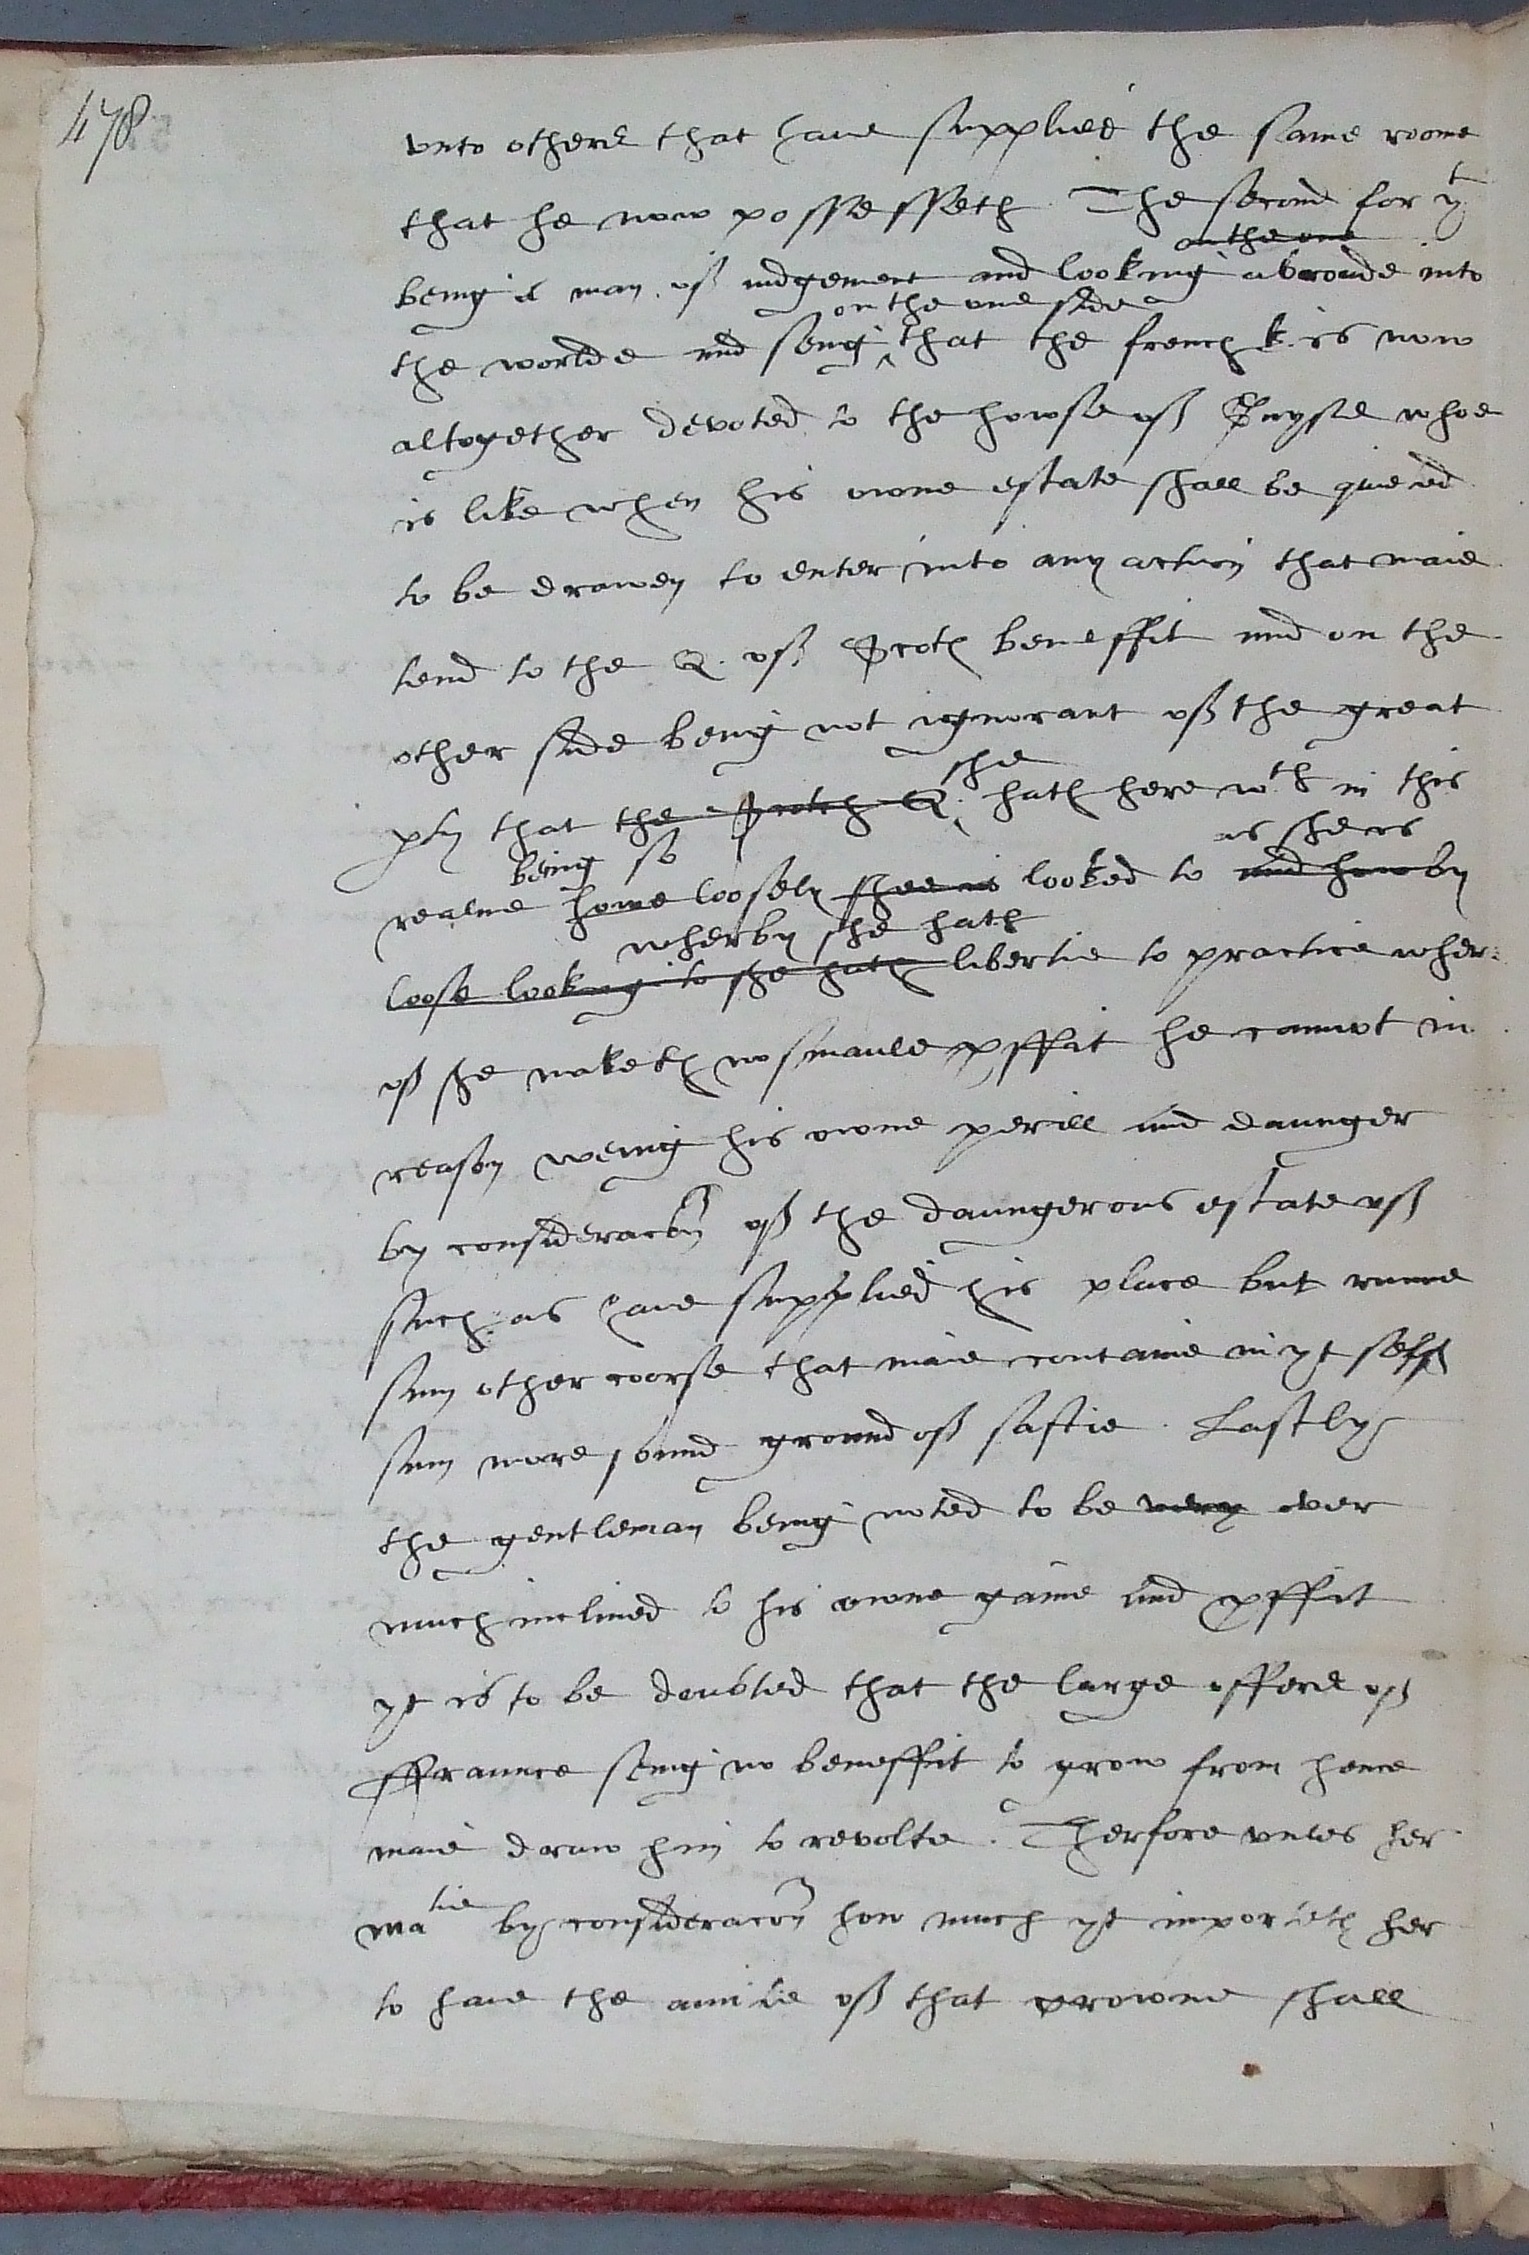 478
vnto others that haue supplied the same roome
that he now possesseth. The second for yt
on the one
being a man off iudgement and looking abroade into
on the one side
the worlde and seing ^ that the french k. is now
altogether devoted to the howse off Guyse whoe
is like when his owne estate shall be quieted
to be drawen to enter into any action that maie
tend to the Q. off Scotes beneffit and on the
other side being not ignorant off the great
she
pty that the Scotch Q. ^ hath here wth in this
being so as she is
realme howe loosely shee is looked to and how by
wherby she hath
loose looking to she hath libertie to practice wher=
off she maketh no smaule pffit he cannot in
reason weing his owne perill and daunger
by consideracon off the daungerous estate off
such as haue supplied his place but runne
sum other coorse that maie containe in yt selff
sum more sound ground off saftie. Lastly
the gentleman being noted to be very over
much inclined to his owne gaine and pffit
yt is to be doubted that the large offers off
ffraunce seing no beneffit to grow from hence
maie draw him to revolte. Therfore vnles her
matie by consideracon how much yt importeth her
to haue the amitie off that crowne shall